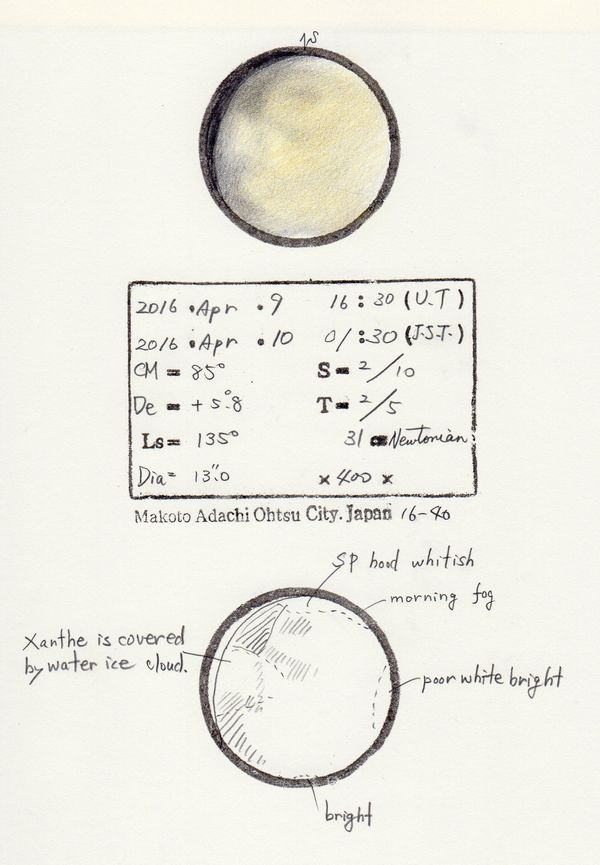 S
2016 • Apr • 9 16 : 30 (U.T)
2016 • Apr • 10 01 : 30 (J.S.T.)
CM = 85° S = 2/10
De = +5.°8 T = 2/5
Ls = 135° 31 Newtonian
Dia = 13".0 × 400 ×
Makoto Adachi Ohtsu City. Japan 16-40
SP hood whitish
morning fog
Xanthe is covered
by water ice cloud.
poor white bright
bright